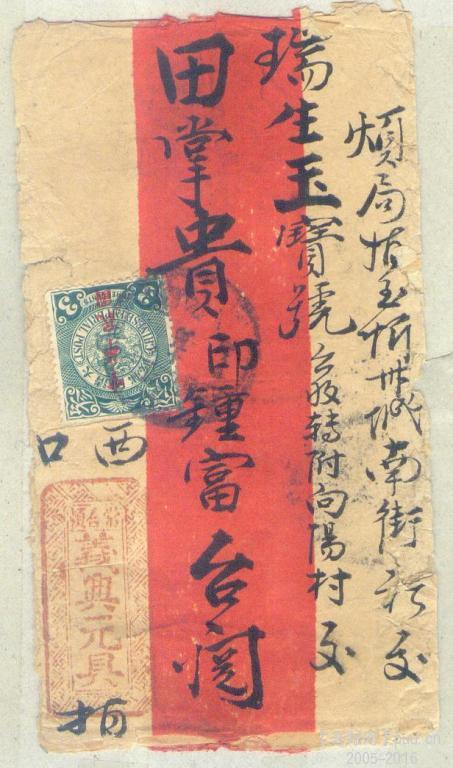 煩局捎至忻州城南街祈交
瑞生玉寳號台啟轉附向陽村交
田掌貴印鍾富台闻
西口
義興元具
2005-2016